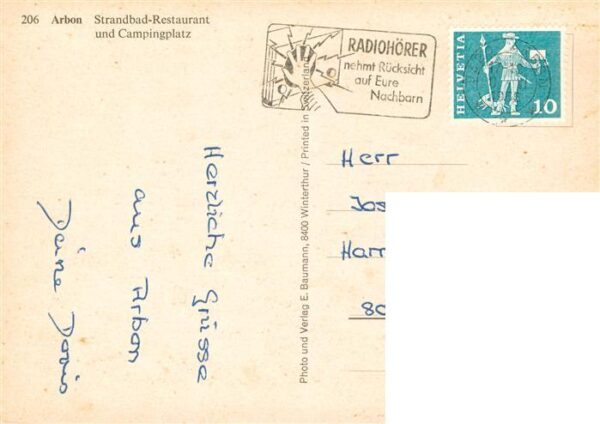 206 Arbon Strandbad-Restaurant
und Campingplatz
RADIOHÖRER
nehmt Rücksicht
auf Eure
Nachbarn
HELVETIA
10
Herzliche Grüsse
aus Arbon
Deine Doris
Photo und Verlag E. Baumann, 8400 Winterthur / Printed in Switzerland
Herr
Jos
Harr
80